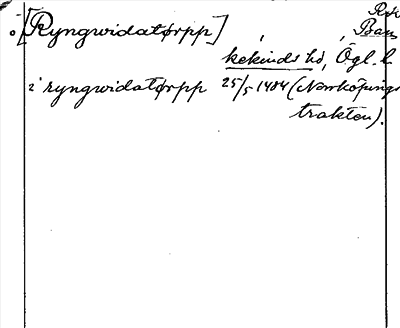 [Ryngwidatørpp] , , Ban
kekinds hd, Ögl. l.
2 ryngwidatørpp 25/5 1484 (Norrköpings
trakten).